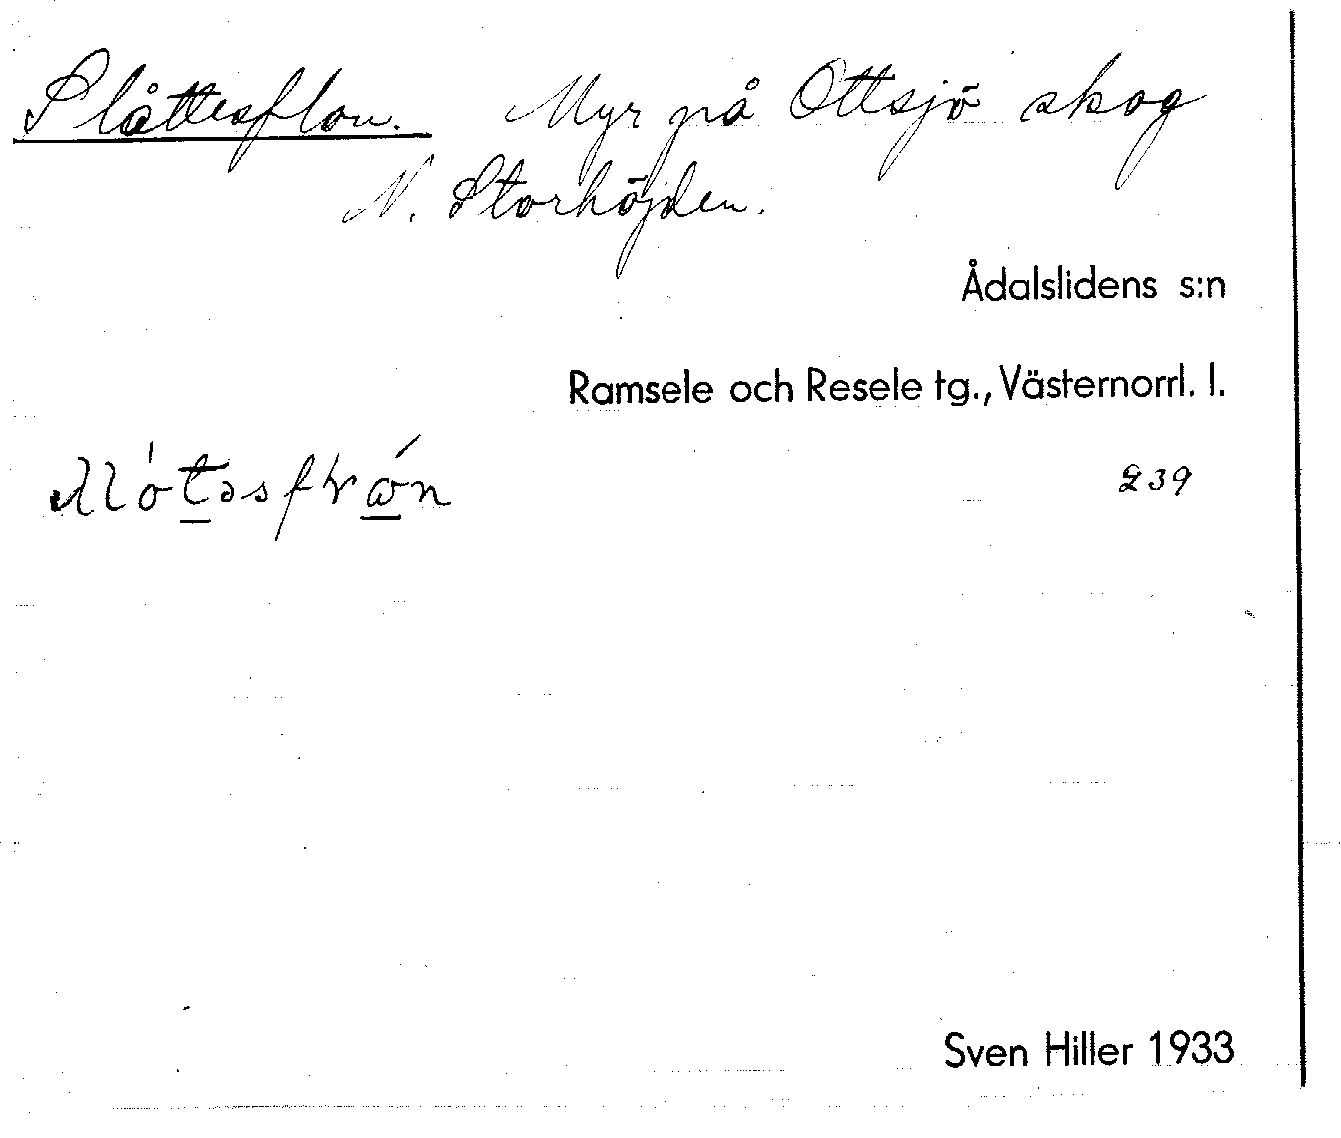 Slåttesflon. Myr på Ottsjö skog
N. Storhöjden.
Ådalslidens s:n
Ramsele och Resele tg., Västernorrl. l.
239
Sven Hiller 1933